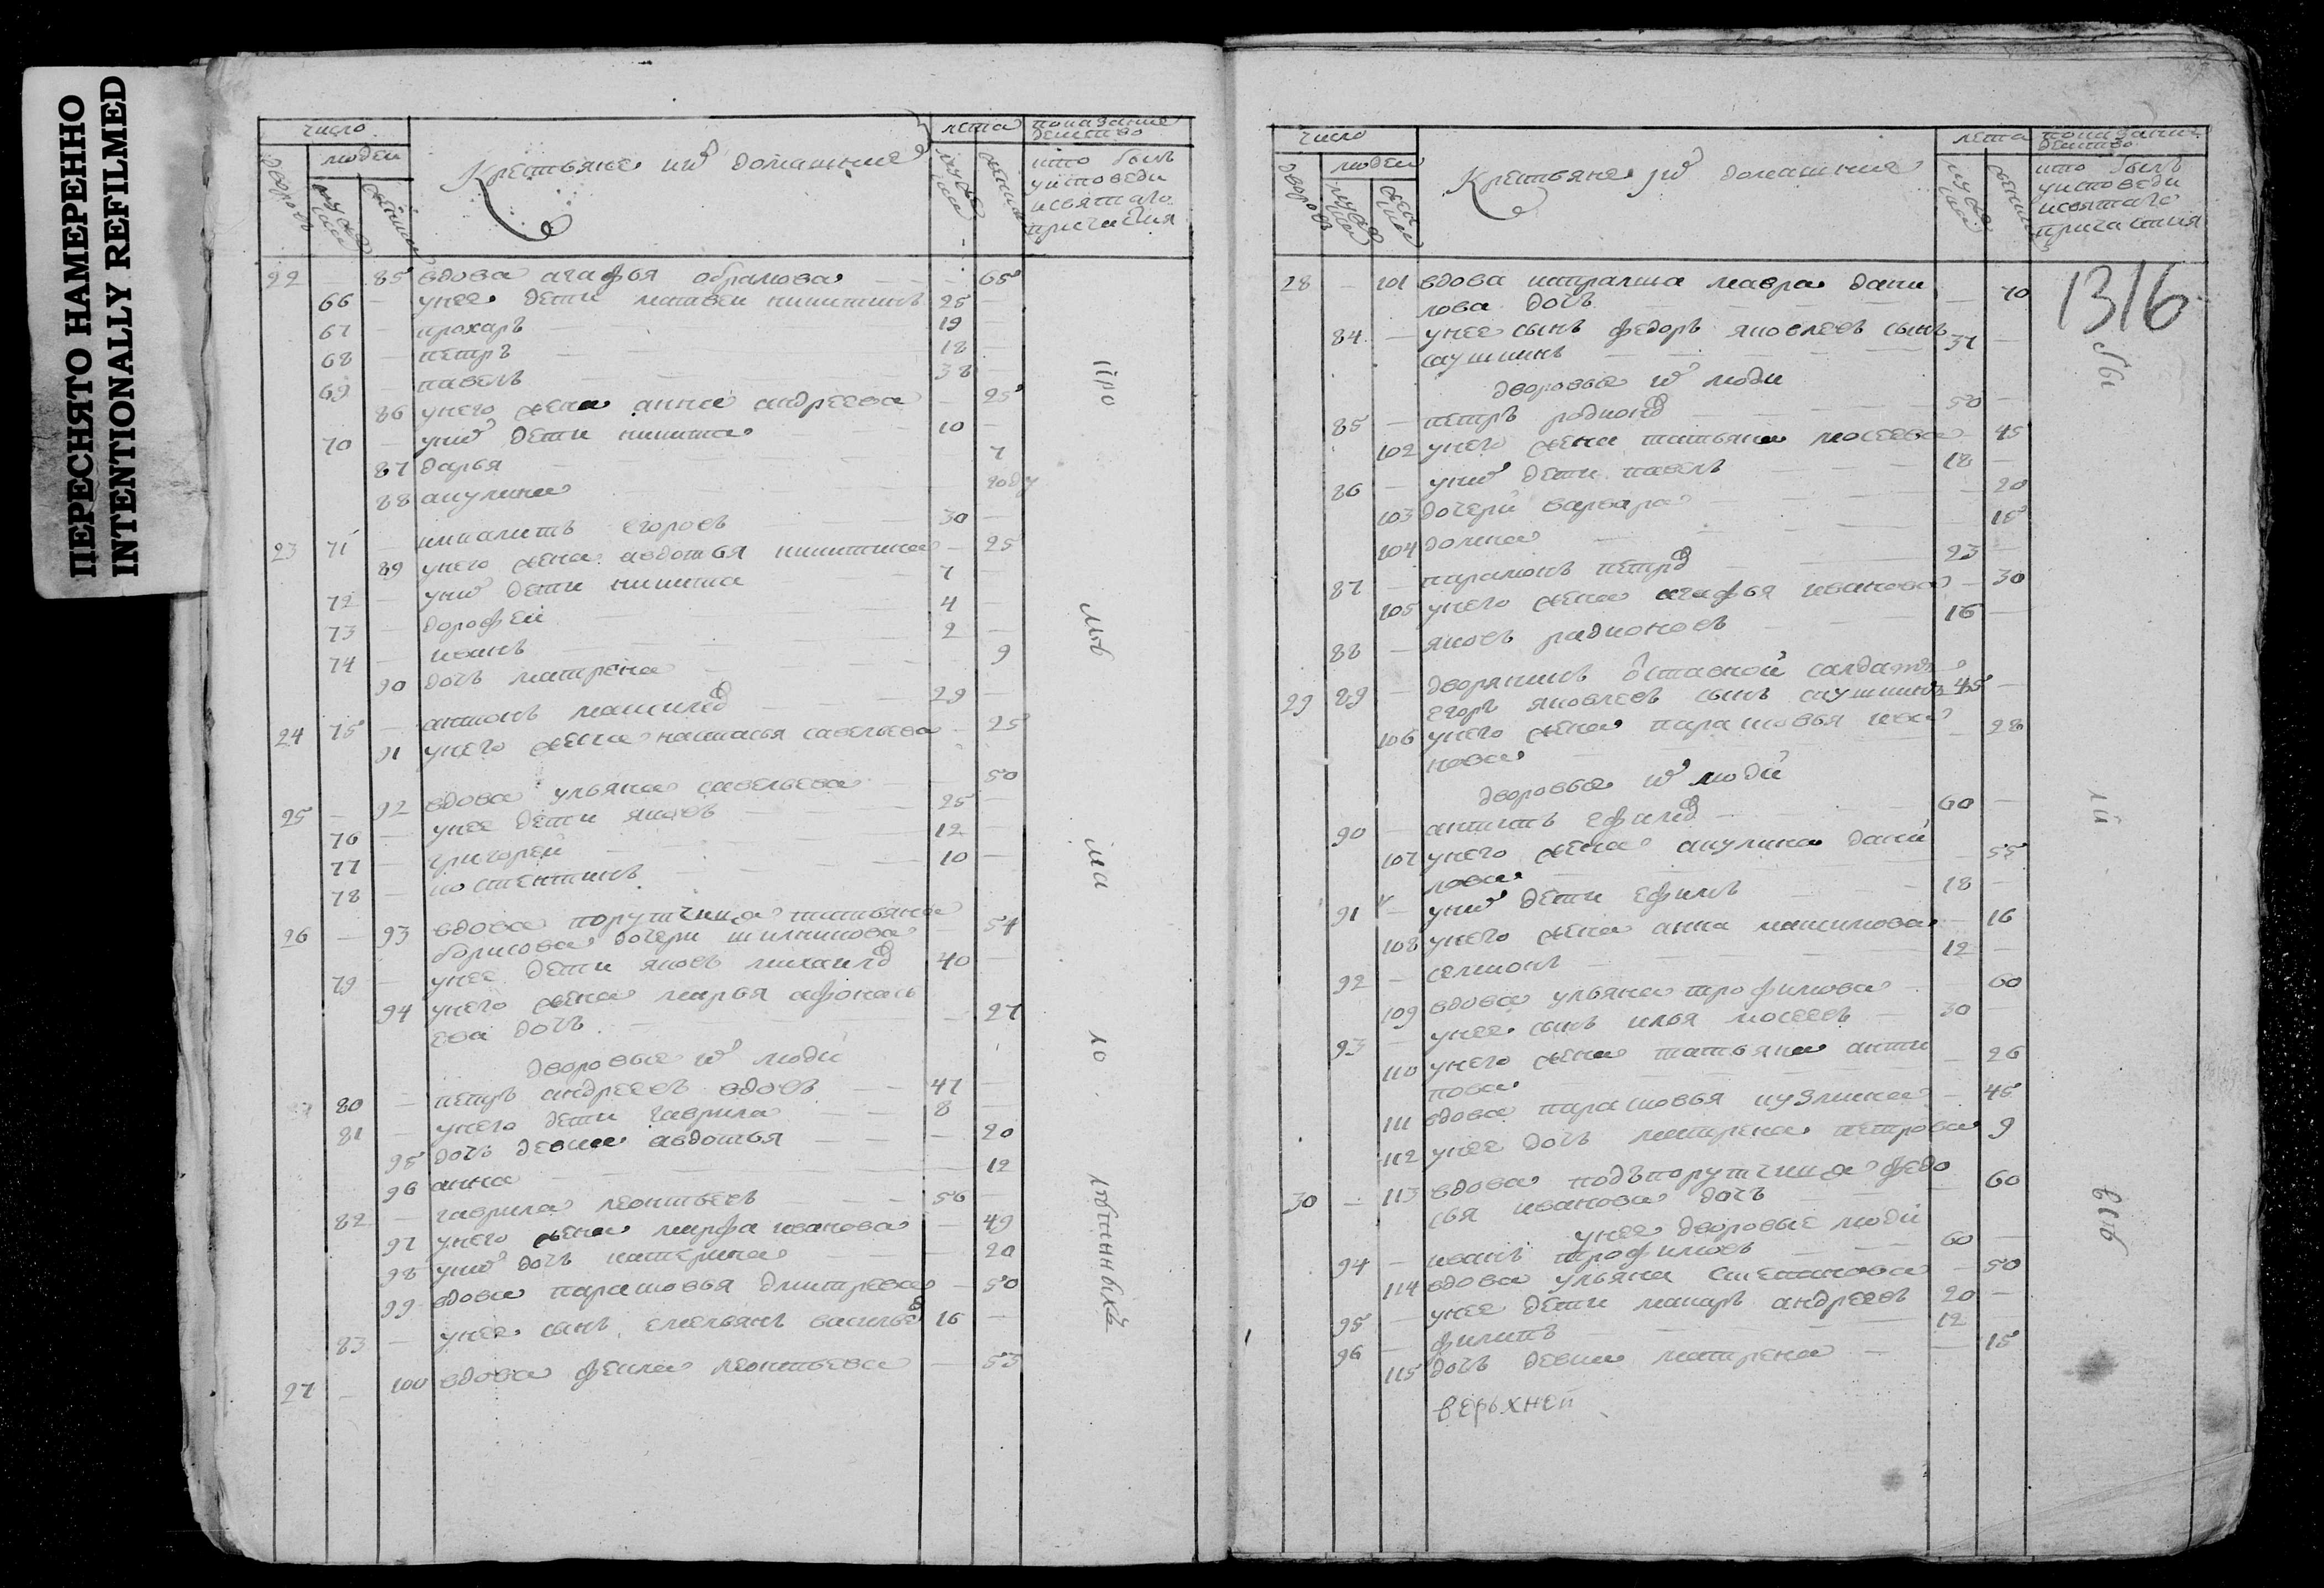 ПЕРЕСНЯТО НАМЕРЕННО
INTENTIONALLY REFILMED
число
людеи
дворовъ
Крестьяне их домашние
лета
показание
действо
кто былъ
у исповеди
и святаго
причастия
22 85 вдова агафья обрамова 65
66 у нее дети матвеи никитинъ 25
67 прохаръ 19
68 петръ 18
69 павелъ 38
86 у него жена анна андреева 25
70 у них дети никита 10
87 дарья 7
88 акулина году
23 71 ипалитъ егоровъ 30
89 у него жена авдотья никитина 25
72 у них дети никита 7
73 дорофеи 4
74 иванъ 2
90 дочь матрена 9
24 75 антонъ 29
91 у него жена настасья савельева 25
25 92 вдова ульяна савельева 50
76 у нее дети яковъ 25
77 григореи 12
78 костентинъ 10
26 93 вдова порутчица татьяна
борисова дочери 54
79 у нее дети яковъ михаилов 40
94 у него жена марья афонась
ева дочь 27
дворовые их люди
80 петръ андреевъ вдовъ 47
81 у него дети гаврила 8
95 дочь девка авдотья 20
96 анна 12
82 гаврила леонтьевъ 56
97 у него жена марфа иванова 49
98 у них дочь катерина 20
99 вдова парасковья дмитрева 50
83 у нее сынъ емельянъ василев 16
27 100 вдова фекла леонтьева 53
число
людеи
дворовъ
Крестьяне их домашние
лета
показание
действо
кто былъ
у исповеди
и святаго
причастия
1316
28 101 вдова капралша мавра дани
лова дочь 70
84 у нее сынъ федоръ яковлевъ сынъ
37
дворовые их люди
85 петръ родионов 50
102 у него жена татьяна мосеева 45
86 у них дети павелъ 18
103 дочери варвара 20
104 домна 15
87 парамонъ петров 23
105 у него жена агафья иванова 30
88 яковъ радионовъ 16
29 89 дворянинъ отставной салдатъ
егоръ яковлевъ сынъ 45
106 у него жена парасковья ива
нова 28
дворовые их люди
90 антипъ ефимов 60
107 у него жена акулина дани
лова 55
91 у них дети ефимъ 18
108 у него жена анна максимова 16
92 семионъ 12
109 вдова ульяна трофимова 60
93 у нее сынъ илья мосеевъ 30
110 у него жена татьяна анти
пова 26
111 вдова парасковья кузмина 45
112 у нее дочь матрена петрова 9
30 113 вдова подъпорутчица федо
сья иванова дочь 60
у нее дворовые люди
94 иванъ трофимовъ 60
114 вдова ульяна степанова 50
95 у нее дети макаръ андреевъ 20
96 филипъ 12
115 дочь девка матрена 15
верьхней